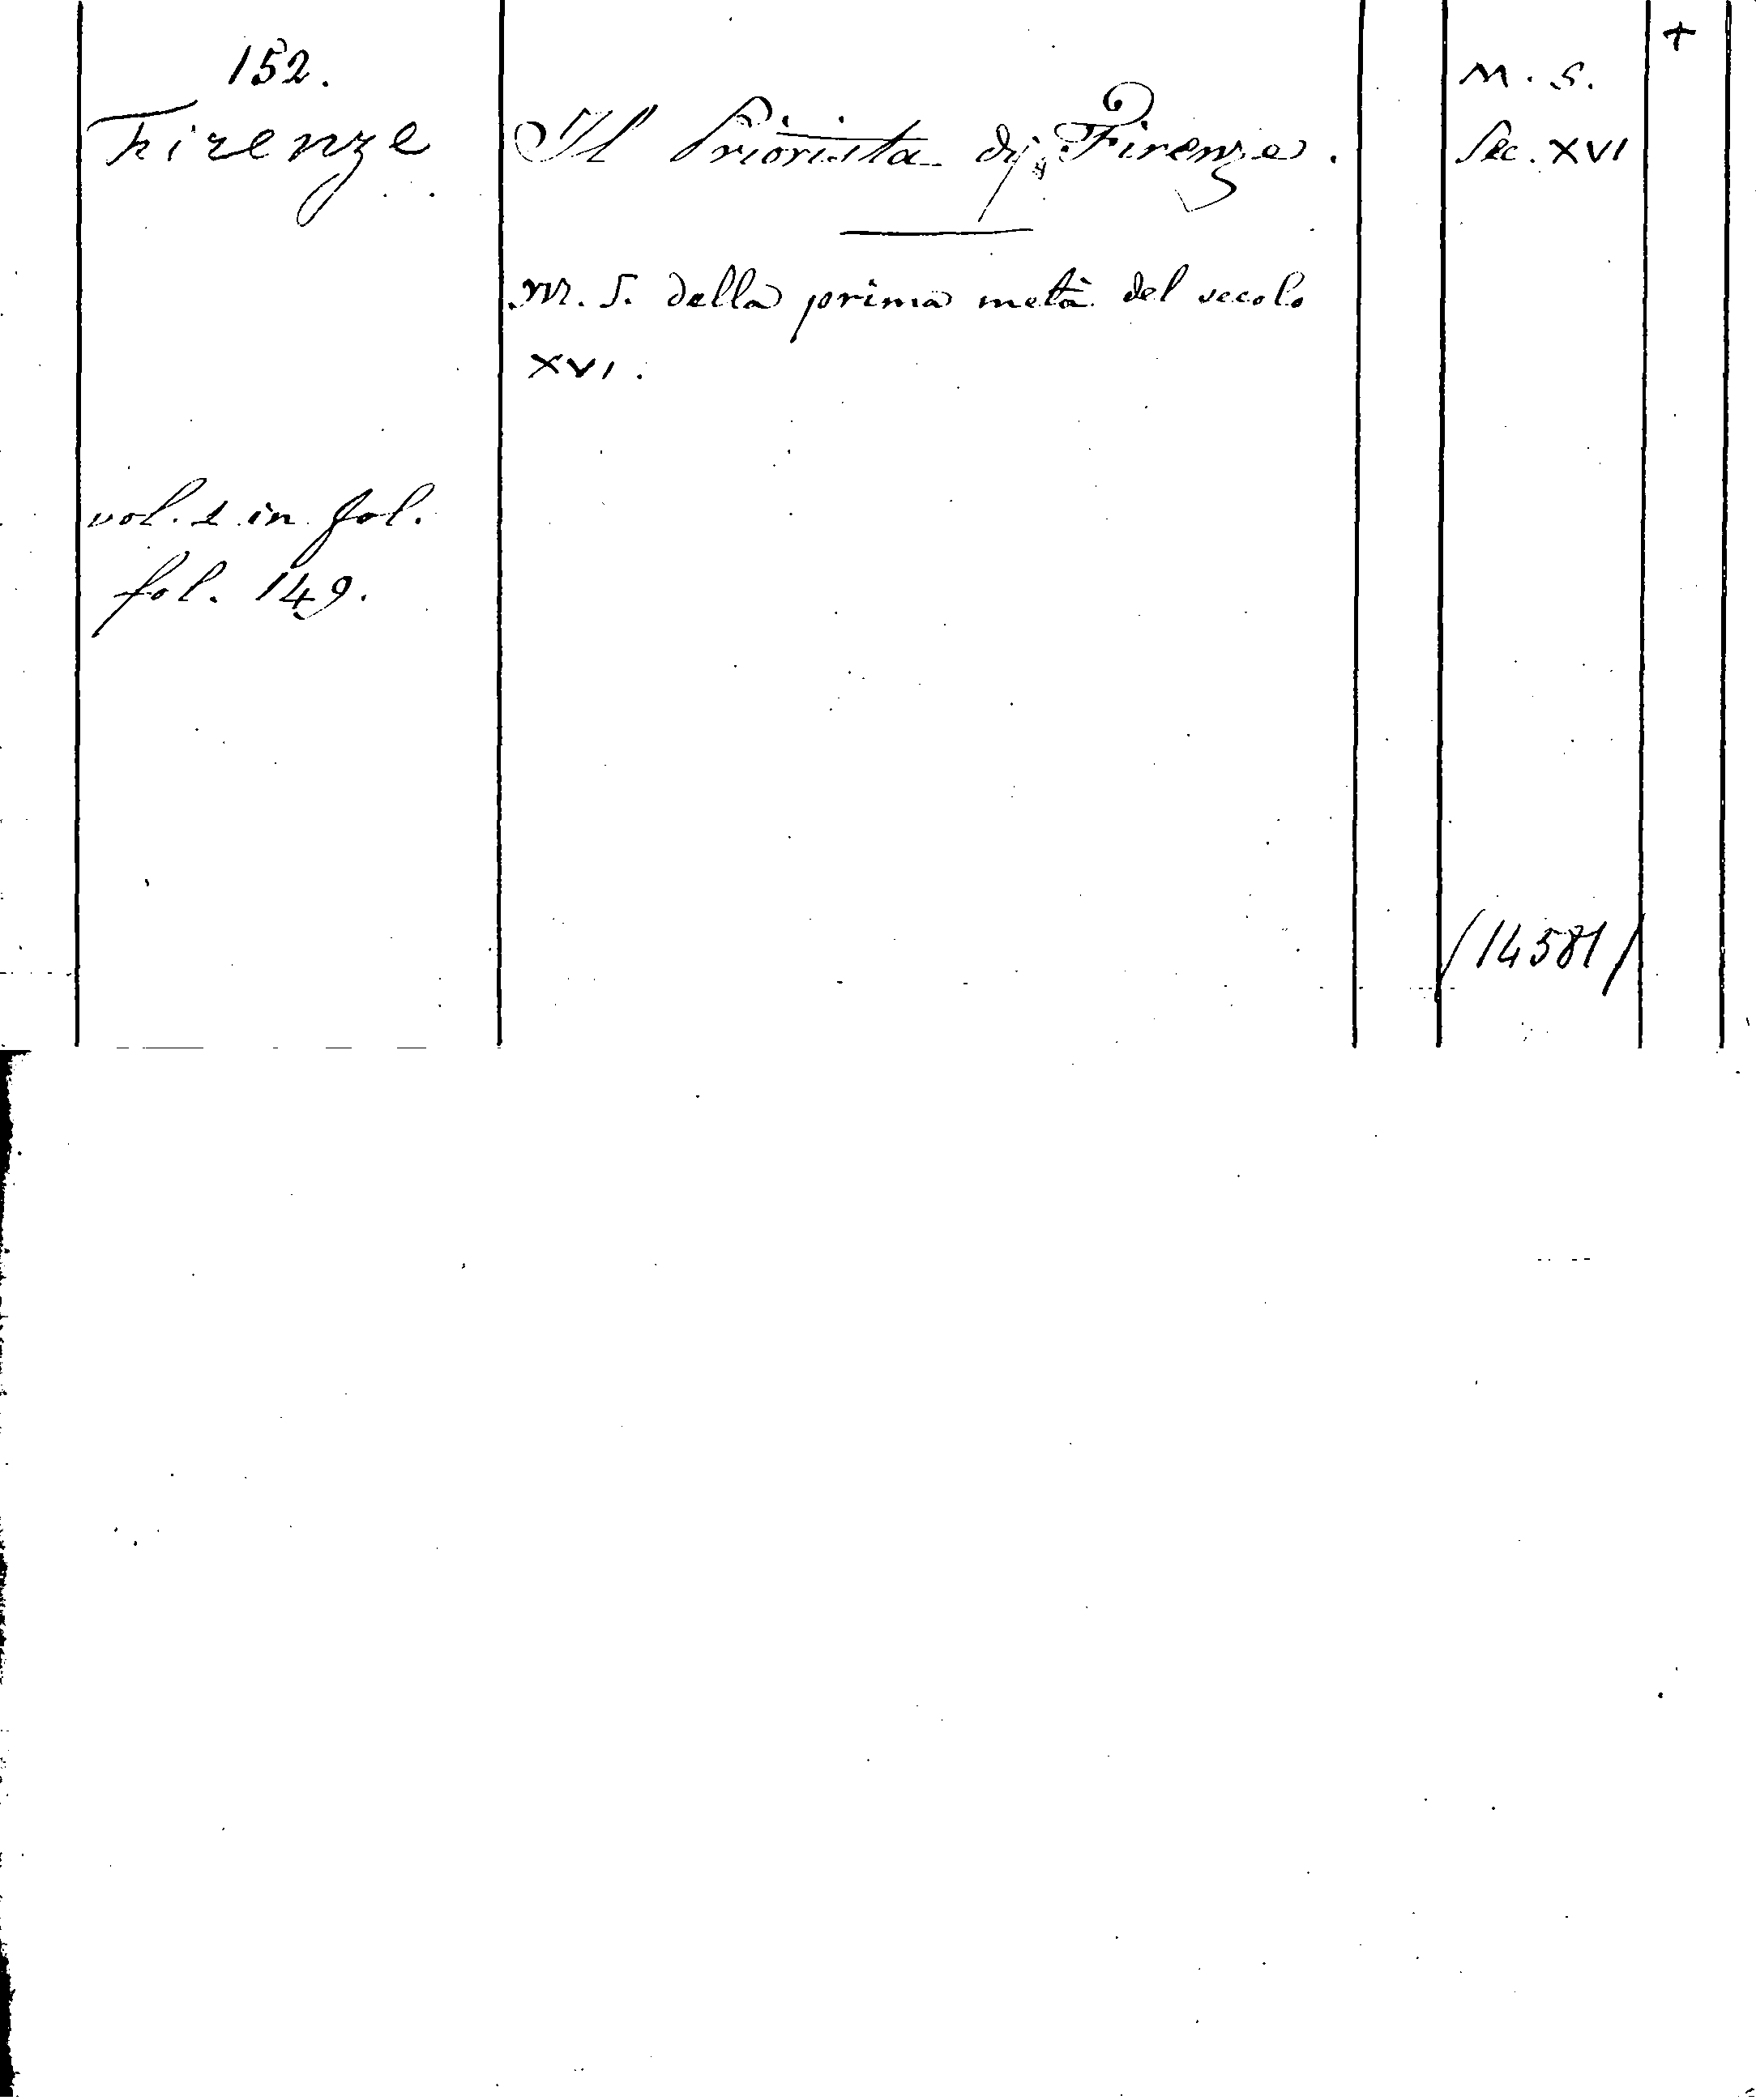 152.
Firenze
vol. 1 in fol.
fol. 149.
Il Priorista di Firenze.
M. S. della prima metà del secolo
XVI.
M. S.
Sec. XVI
(14581)
+